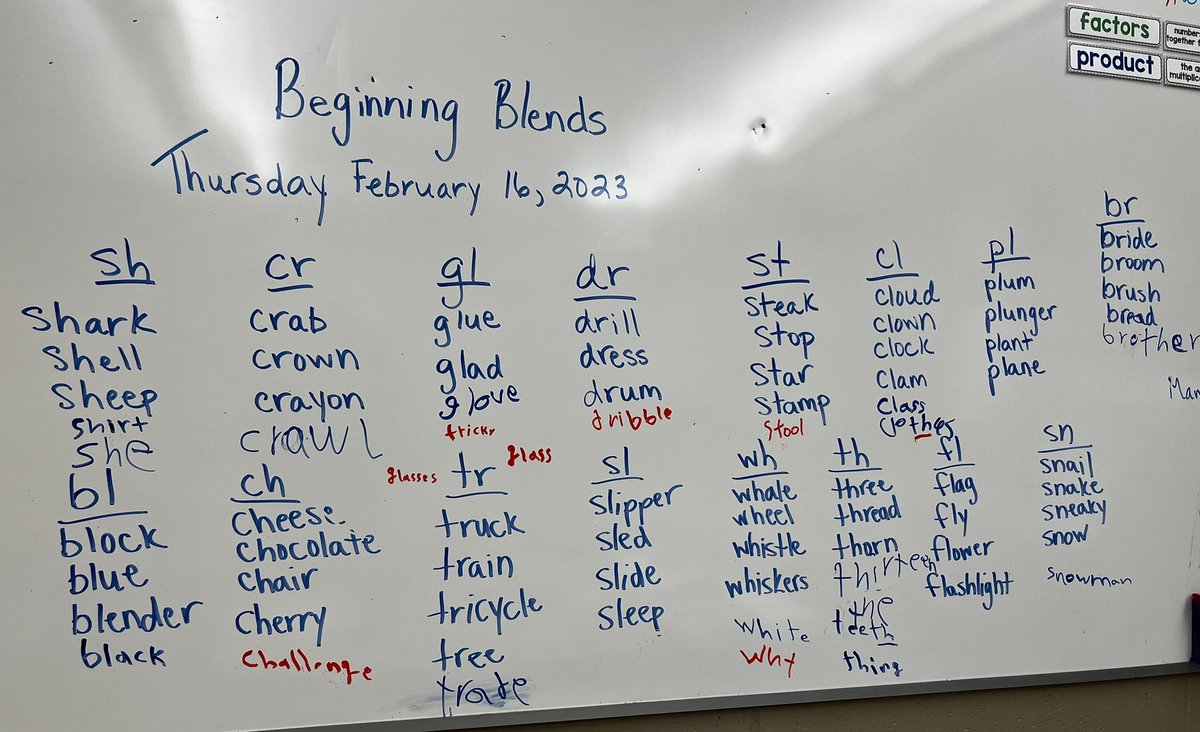 factors
number
together
product
the a
multiplic
Beginning Blends
Thursday February 16, 2023
sh
shark
shell
sheep
shirt
she
cr
crab
crown
crayon
crawl
gl
glue
glad
glove
tricky
glasses
glass
dr
drill
dress
drum
dribble
st
steak
stop
star
stamp
stool
cl
cloud
clown
clock
clam
class
clothes
pl
plum
plunger
plant
plane
br
bride
broom
brush
bread
brother
Mar
bl
block
blue
blender
black
ch
cheese
chocolate
chair
cherry
challenge
tr
truck
train
tricycle
tree
trate
sl
slipper
sled
slide
sleep
wh
whale
wheel
whistle
whiskers
white
why
th
three
thread
thorn
thirteen
the
teeth
thing
fl
flag
fly
flower
flashlight
sn
snail
snake
sneaky
snow
snowman